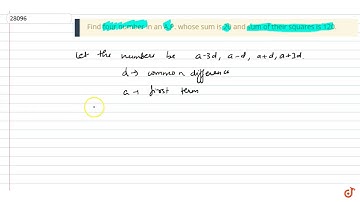 28096
Find four number in an A.P. whose sum is 20 and sum of their squares is 120.
Let the numbers be a-3d, a-d, a+d, a+3d.
d → common difference
a → first term